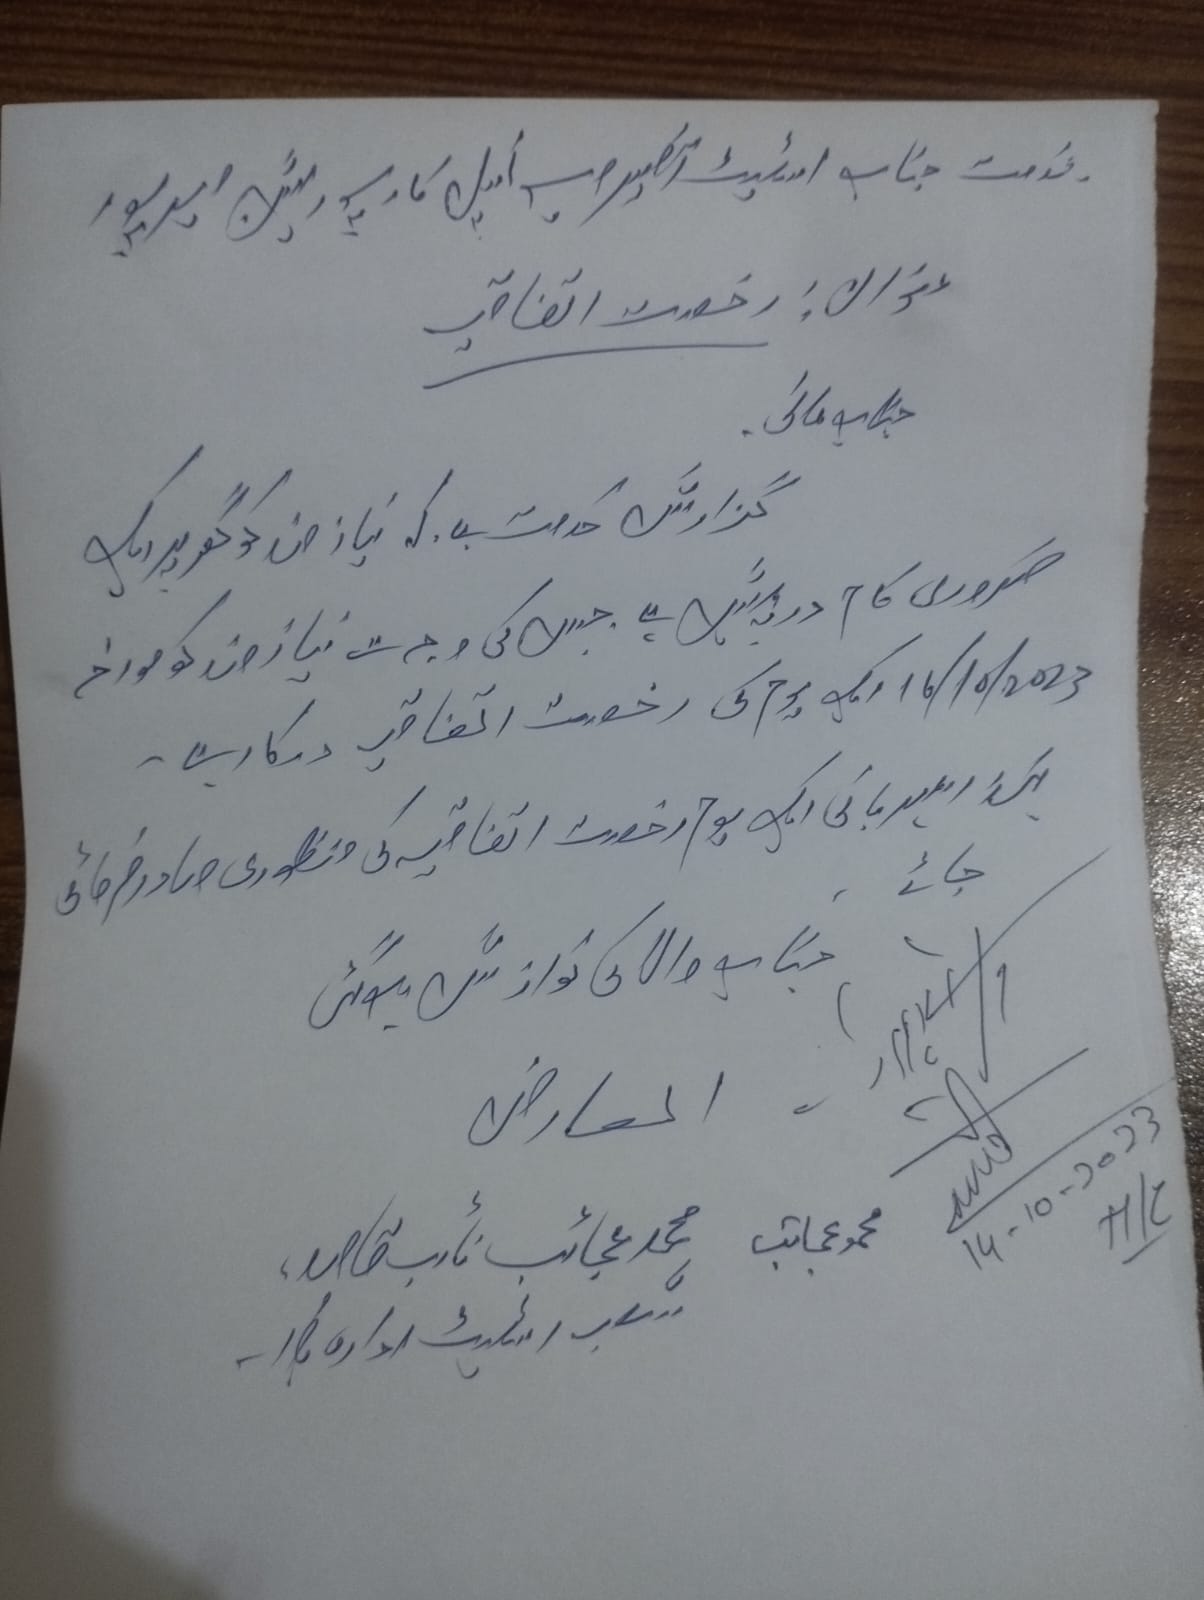 بخدمت جناب اسٹیٹ آفیسر صاحب میونسپل کارپوریشن میرپور
عنوان: رخصت اتفاقیہ
جناب عالی۔
گزارش خدمت ہے کہ نیازمند کو گھر پر ایک
ضروری کام درپیش ہے جس کی وجہ سے نیازمند کو مورخہ
16/10/2023 ایک یوم کی رخصت اتفاقیہ درکار ہے۔
براہ مہربانی ایک یوم رخصت اتفاقیہ کی منظوری صادر فرمائی
جائے۔
جناب والا کی نوازش ہوگی
العارض
محمد عجائب محمد عجائب نائب قاصد،
شعبہ اسٹیٹ ادارہ ہذا۔
14-10-2023